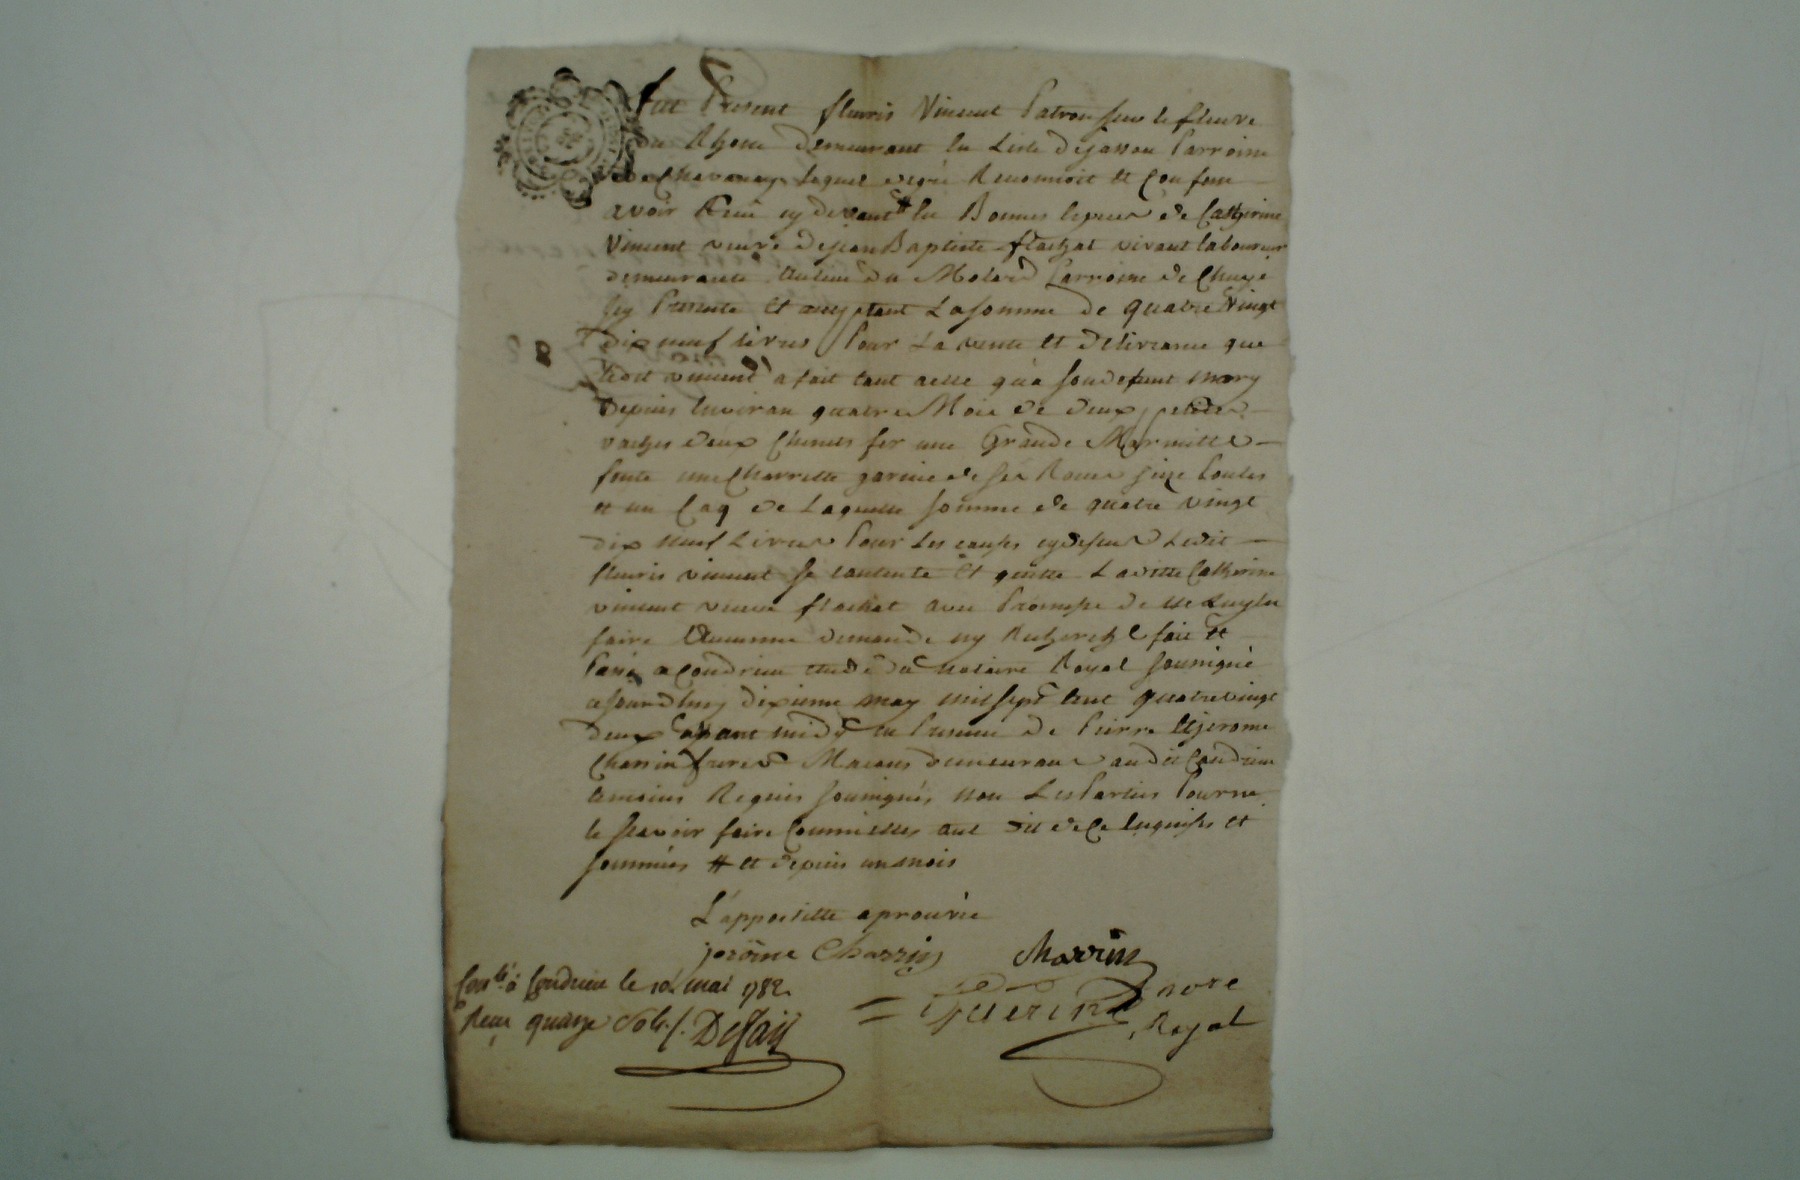 fut Present fleuris Vincent Patron sur le fleuve
du Rhone demeurant en Liste dejassou Parroisse
de Chavanay lequel degré Reconnoit et Confesse
avoir Reçu cy devant # en Bonnes Especes de Catherine
Vincent veuve dejean Baptiste flachat vivant laboureur
demeurante au lieu du Molard Parroisse de Chuyé
icy Presente et acceptant La somme de quatre Vingt
dix neuf livres Pour La vente et delivrance que
ledit vincent a fait tant aelle qu'a son defunt mary
depuis Environ quatre Mois de deux petites
vaches deux Chenets fer une Grande Marmitte
fonte une Charrette garnie de ses Roues seize Poules
et un Coq de Laquelle somme de quatre vingt
dix neuf Livres Pour Les causes cy dessus Ledit
fleuris vincent se contente et quitte Laditte Catherine
vincent veuve flachat avec Promesse de ne Luy en
faire Aucunne demande ny Recherche fait et
Passé a Condrieu etude du notaire Royal soussigné
cejourdhuy dixieme may mil sept cent quatrevingt
deux avant midy en Presence de Pierre et jerome
Charrin freres Macons demeurans audit Condrieu
temoins Requis soussignés, non Les Parties Pour ne
le sçavoir faire comme elles ont dit de ce Enquises et
sommées # et depuis un mois
L'appostille aprouvée
jerôme Charrin Charrin
Conlé à Condrieu le 10 mai 1782.
Reçu quinze sols /. Desfay
Guerin nore
Royal